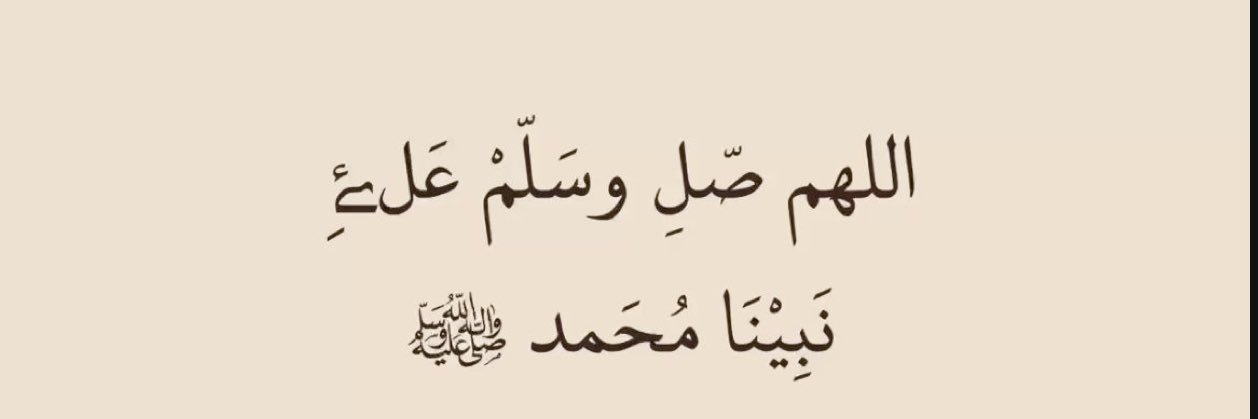 اللهم صّلِ وسَلّمْ عَلۓِ
نَبِيْنَا مُحَمد ﷺ